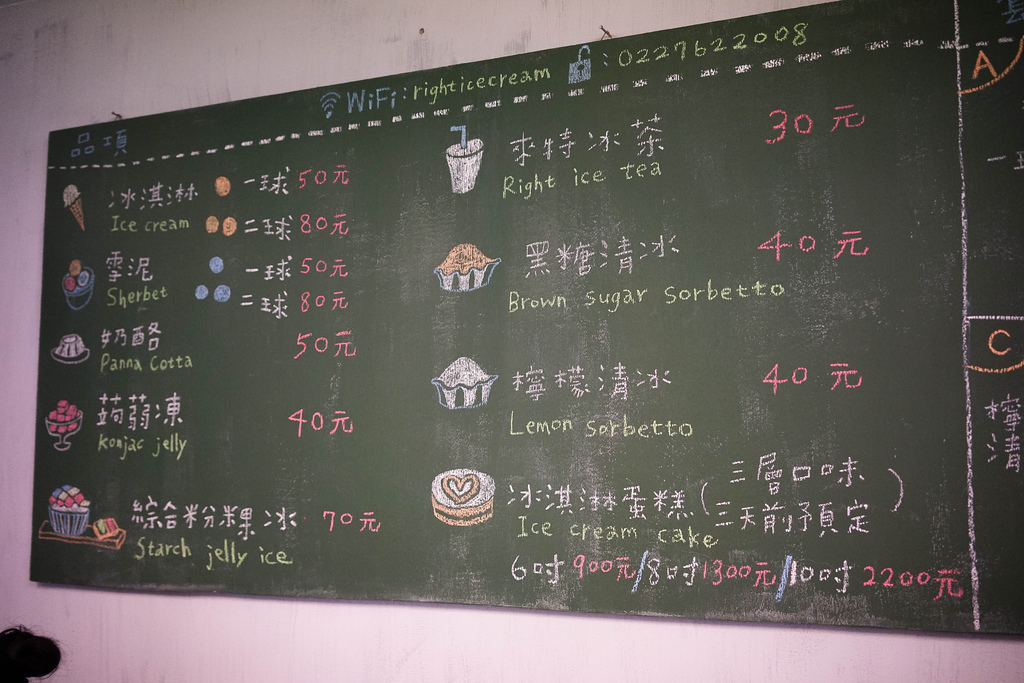 WiFi: righticecream : 0227622008
品項
冰淇淋 一球 50元
Ice cream 二球 80元
雪泥 一球 50元
Sherbet 二球 80元
奶酪 50元
Panna Cotta
蒟蒻凍 40元
Konjac jelly
綜合粉粿冰 70元
Starch jelly ice
來特冰茶 30元
Right ice tea
黑糖清冰 40元
Brown sugar sorbetto
檸檬清冰 40元
Lemon sorbetto
冰淇淋蛋糕(三層口味
三天前預定)
Ice cream cake
6吋900元/8吋1300元/10吋2200元
A
一
C
檸
清